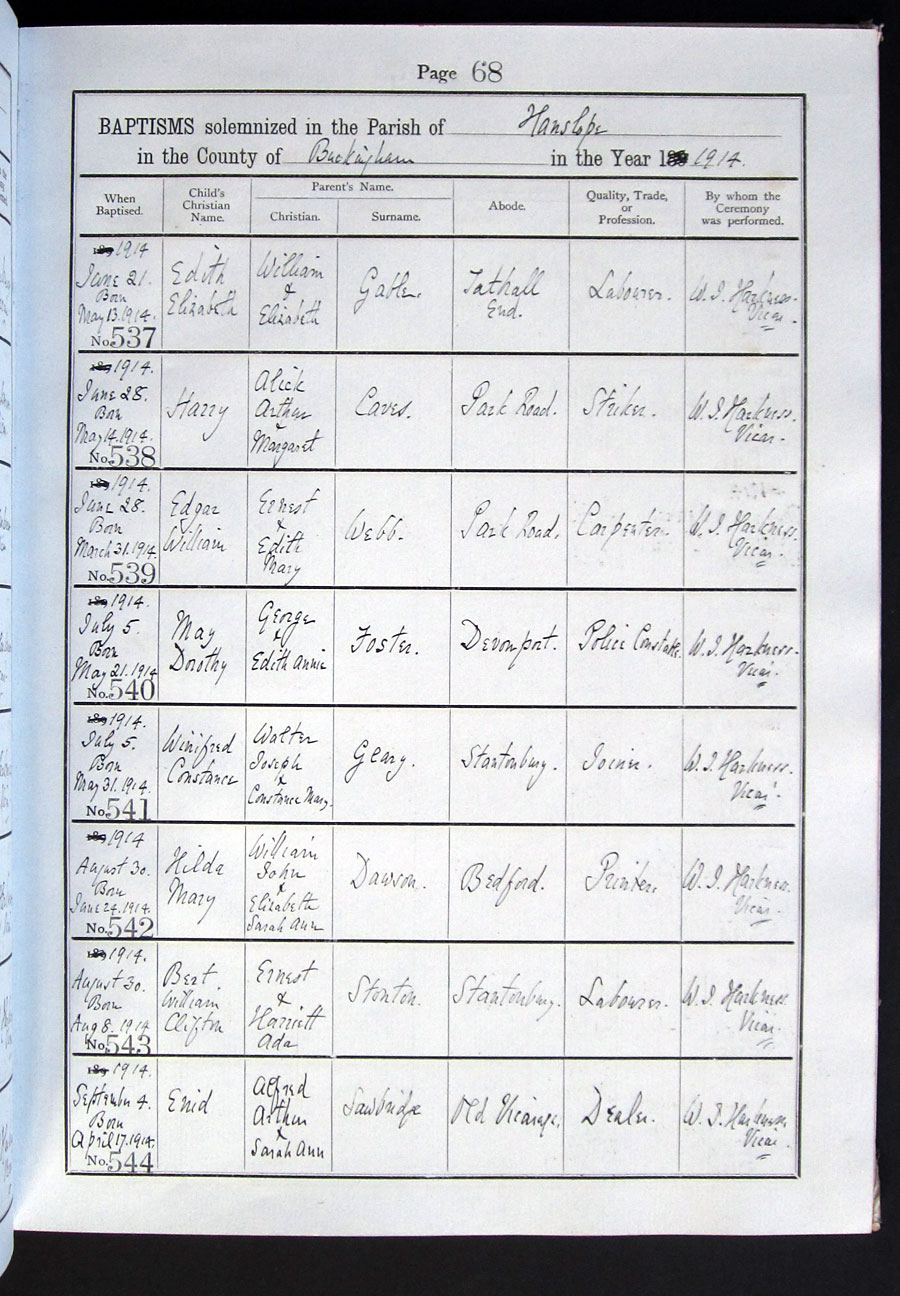 Page 68
BAPTISMS solemnized in the Parish of Hanslope
in the County of Buckingham in the Year 189 1914.
When Baptised.
Child's Christian Name.
Parent's Name.
Christian.
Surname.
Abode.
Quality, Trade, or Profession.
By whom the Ceremony was performed.
189 1914
June 21.
Born
May 13. 1914.
No. 537
Edith
Elizabeth
William
&
Elizabeth
Gable.
Tathall
End.
Labourer.
W. J. Harkness.
Vicar.
189 1914.
June 28.
Born
May 14. 1914.
No. 538
Harry
Alick
Arthur
&
Margaret
Caves.
Park Road.
Striker.
W. J. Harkness.
Vicar.
189 1914.
June 28.
Born
March 31. 1914.
No. 539
Edgar
William
Ernest
&
Edith
Mary
Webb.
Park Road.
Carpenter.
W. J. Harkness.
Vicar.
189 1914.
July 5.
Born
May 21. 1914
No. 540
May
Dorothy
George
&
Edith Annie
Foster.
Devonport.
Police Constable.
W. J. Harkness.
Vicar.
189 1914.
July 5.
Born
May 31. 1914.
No. 541
Winifred
Constance
Walter
Joseph
&
Constance Mary.
Geary.
Stantonbury.
Joiner.
W. J. Harkness.
Vicar.
189 1914
August 30.
Born
June 24. 1914.
No. 542
Hilda
Mary
William
John
&
Elizabeth
Sarah Ann
Dawson.
Bedford.
Printer.
W. J. Harkness.
Vicar.
189 1914.
August 30.
Born
Aug 8. 1914
No. 543
Bert.
William
Clifton
Ernest
&
Harriett
Ada
Stonton.
Stantonbury.
Labourer.
W. J. Harkness.
Vicar.
189 1914.
September 4.
Born
April 17. 1914.
No. 544
Enid
Alfred
Arthur
&
Sarah Ann
Sawbridge
Old Vicarage.
Dealer.
W. J. Harkness
Vicar.